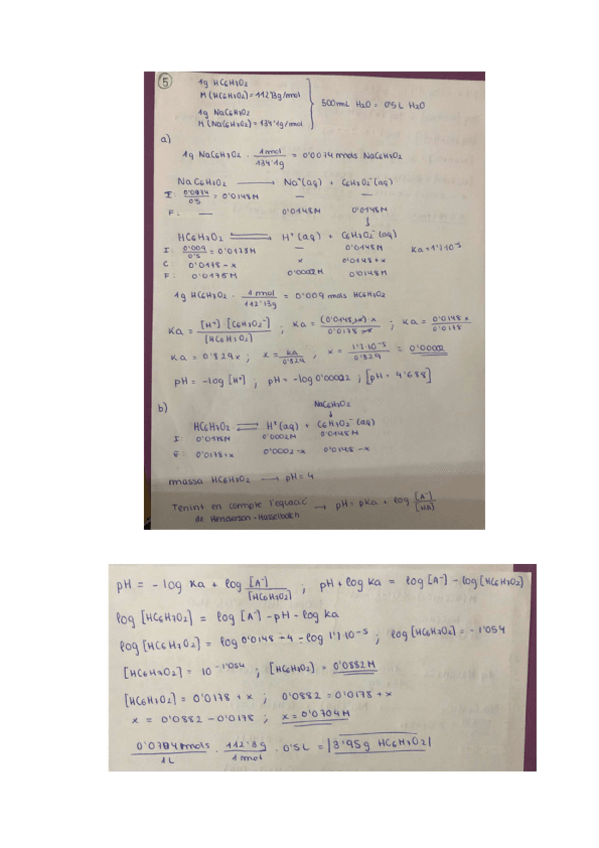 5
1g HC6H7O2
M (HC6H7O2) = 112'13g/mol
1g NaC6H7O2
M (NaC6H7O2) = 134'1g/mol
500mL H2O = 0'5L H2O
a)
1g NaC6H7O2 · 1 mol / 134'1g = 0'0074 mols NaC6H7O2
NaC6H7O2 ⟶ Na+(aq) + C6H7O2-(aq)
I: 0'0074/0'5 = 0'0148M — —
F: — 0'0148M 0'0148M
HC6H7O2 ⇌ H+(aq) + C6H7O2-(aq)
I: 0'009/0'5 = 0'0178M — 0'0148M Ka = 1'7·10-5
C: 0'0178-x x 0'0148+x
F: 0'0175M 0'0002M 0'0148M
1g HC6H7O2 · 1 mol / 112'13g = 0'009 mols HC6H7O2
Ka = [H+]·[C6H7O2-] / [HC6H7O2] ; Ka = (0'0148+x)·x / 0'0178-x ; Ka = 0'0148x / 0'0178
Ka = 0'829x ; x = Ka / 0'829 ; x = 1'7·10-5 / 0'829 = 0'00002
pH = -log [H+] ; pH = -log 0'00002 ; [pH = 4'688]
b)
NaC6H7O2
↓
HC6H7O2 ⇌ H+(aq) + C6H7O2-(aq)
I: 0'0178M 0'0002M 0'0148M
E: 0'0178+x 0'0002-x 0'0148-x
massa HC6H7O2 ⟶ pH = 4
Tenint en compte l'equació
de Henderson-Hasselbalch → pH = pKa + log [A-] / [HA]
pH = -log Ka + log [A-] / [HC6H7O2] ; pH + log Ka = log [A-] - log [HC6H7O2]
log [HC6H7O2] = log [A-] - pH - log Ka
log [HC6H7O2] = log 0'0148 - 4 - log 1'7·10-5 ; log [HC6H7O2] = -1'054
[HC6H7O2] = 10-1'054 ; [HC6H7O2] = 0'0882M
[HC6H7O2] = 0'0178 + x ; 0'0882 = 0'0178 + x
x = 0'0882 - 0'0178 ; x = 0'0704M
0'0704mols / 1L · 112'13g / 1 mol · 0'5L = |3'95g HC6H7O2|